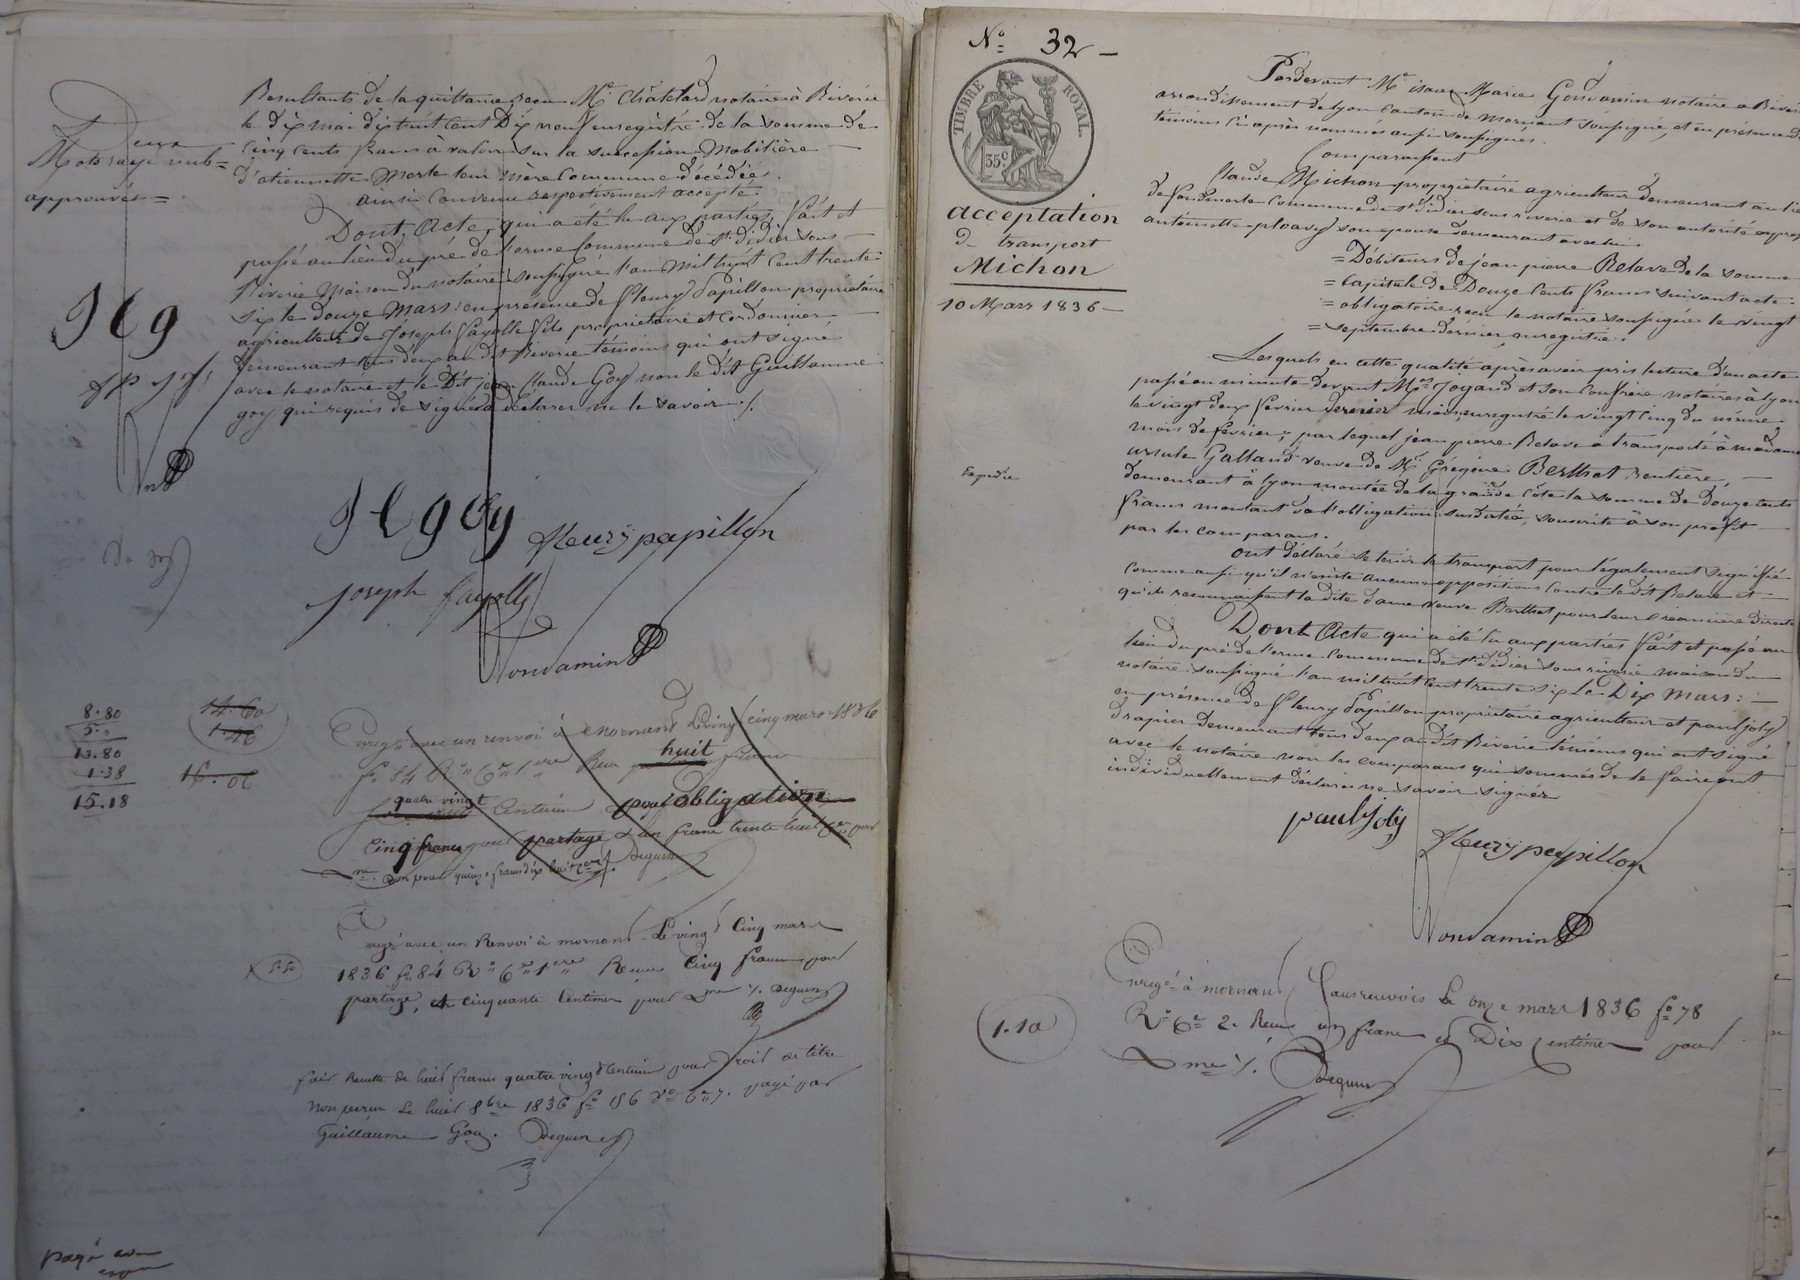 Resultants de la quittance reçue Me Châtelard notaire à Riverie
le dix mai dix huit cent Dix neuf enregistré de la somme de
cinq cents francs à valoir sur la succession Mobilière
d'étiennette Merle leur Mère Commune décédée.
ainsi convenu respectivement accepté
Dont Acte, qui a été lu aux parties, fait et
passé au lieu du pré de l'orme Commune de St Didier sous
Riverie Maison du notaire soussigné l'an mil huit cent trente
six le douze Mars: en présence de fleury Papillon propriétaire
agriculteur de Joseph fayolle fils propriétaire et Cordonnier
demeurant tous deux au dit Riverie témoins qui ont signé
avec le notaire et le Dit jean Claude Goy non le dit Guillaume
goy qui requis de signer a déclarer ne le savoir ./.
Deux
Mots rayé nul=
approuvés=
JCg
fp jf
JC goy
fleury papillon
joseph fayolle
Gondamin
8.80
5."
13.80
1.38
15.18
14.60
1.46
16.06
Enregé avec un renvoi à Mornant Le vingt cinq mars 1836
fo 84 Ro Ce 1ere Reçu huit francs
quatre vingt Centimes pour obligation
Cinq francs pour partage & un franc trente huit Ces par
Dme. Bon pour quinze francs dix huit ces Deguin
55
Enregé avec un Renvoi à mornant Le vingt Cinq mars
1836 fo 84 Ro Ce 1ere Reçu Cinq francs pour
partage, et cinquante Centimes pour Dme ./. Deguin
fait Recette de huit francs quatre vingt Centimes pour Droit de titre
Non perçu Le huit 8bre 1836 fo 186 Vo Ce 7. payé par
Guillaume Goy. Deguin
payé avec
No 32
TIMBRE ROYAL.
35c
Acceptation
de transport
Michon
10 Mars 1836
Expédié
Pardevant Me isaac Marie Gondamin notaire a Riverie
arrondissement de lyon Canton de Mornant soussigné et en présence des
témoins ci après nommés aussi soussignés.
Comparaissent
Claude Michon propriétaire agriculteur demeurant au lieu
de fondmerle Commune de St didier sous riverie et de son autorité
antoinette ploavy son épouse demeurant avec lui.
=Débiteurs de jean pierre Relave de la somme
=Capitale de Douze Cents francs suivant acte
=obligatoire reçu le notaire soussigné le vingt
=septembre dernier, enregistré.
Lesquels en cette qualité après avoir pris lecture d'un acte
passé en minute devant Mes Joyard et son Confrère notaires à lyon
le vingt deux février dernier mois, enregistré le vingt Cinq du même
mois de février, par lequel jean pierre Relave a transporté à madame
ursule Galland veuve de Mr Grégoire Berthet rentière,
demeurant à lyon montée de la grande Côte la somme de Douze Cents
francs montant de l'obligation susdatée, souscrite à son profit
par les comparans.
ont déclaré se tenir le transport pour légalement signifié
comme aussi qu'il n'existe aucune opposition contre le dit Relave et
qu'ils reconnaissent la dite dame veuve Berthet pour leur Créancière directe
Dont Acte qui a été lu aux parties fait et passé au
lieu du pré de l'orme Commune de St didier sous riverie maison du
notaire soussigné l'an mil huit cent trente six Le Dix Mars:
en présence de fleury Papillon propriétaire agriculteur et paul joly
drapier demeurant tous deux au dit Riverie témoins qui ont signé
avec le notaire non les comparans qui sommés de le faire ont
individuellement déclarés ne savoir signer
paul joly
fleury papillon
Gondamin
1.10
Enregé à mornant sans renvois Le onze mars 1836 fo 78
Ro Ce 2. Reçu un franc et Dix Centimes pour
Dme ./. Deguin